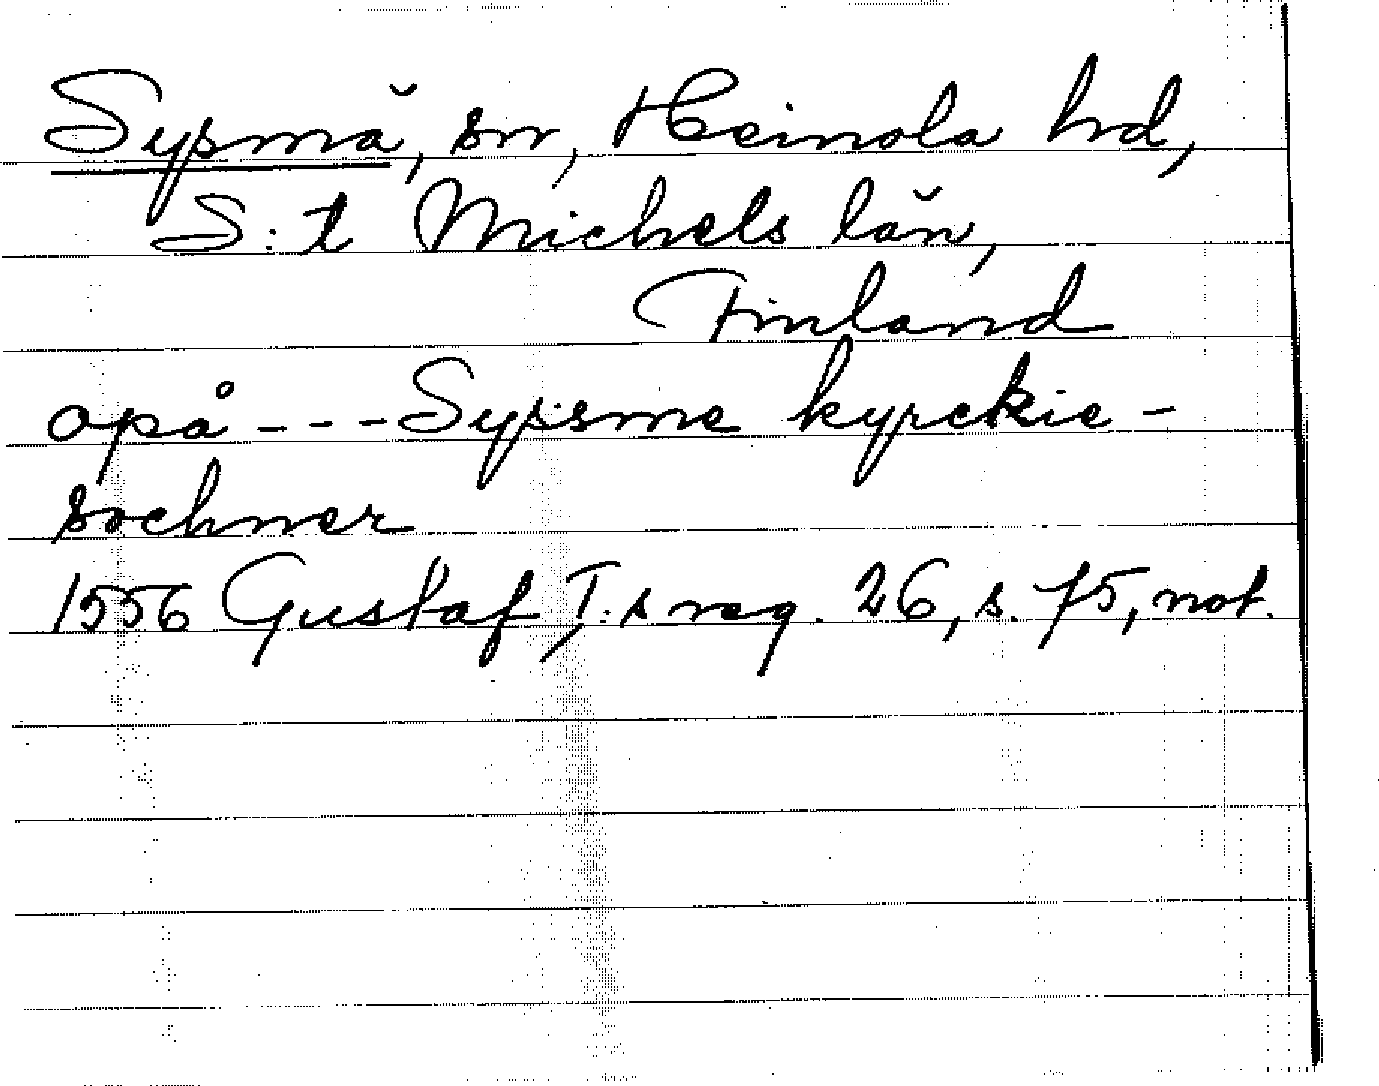 Sysmä, sn, Heinola hd,
S:t Michels län,
Finland
opå - - - Syssme kyrckie-
sochner
1556 Gustaf I:s reg. 26, s. 75, not.